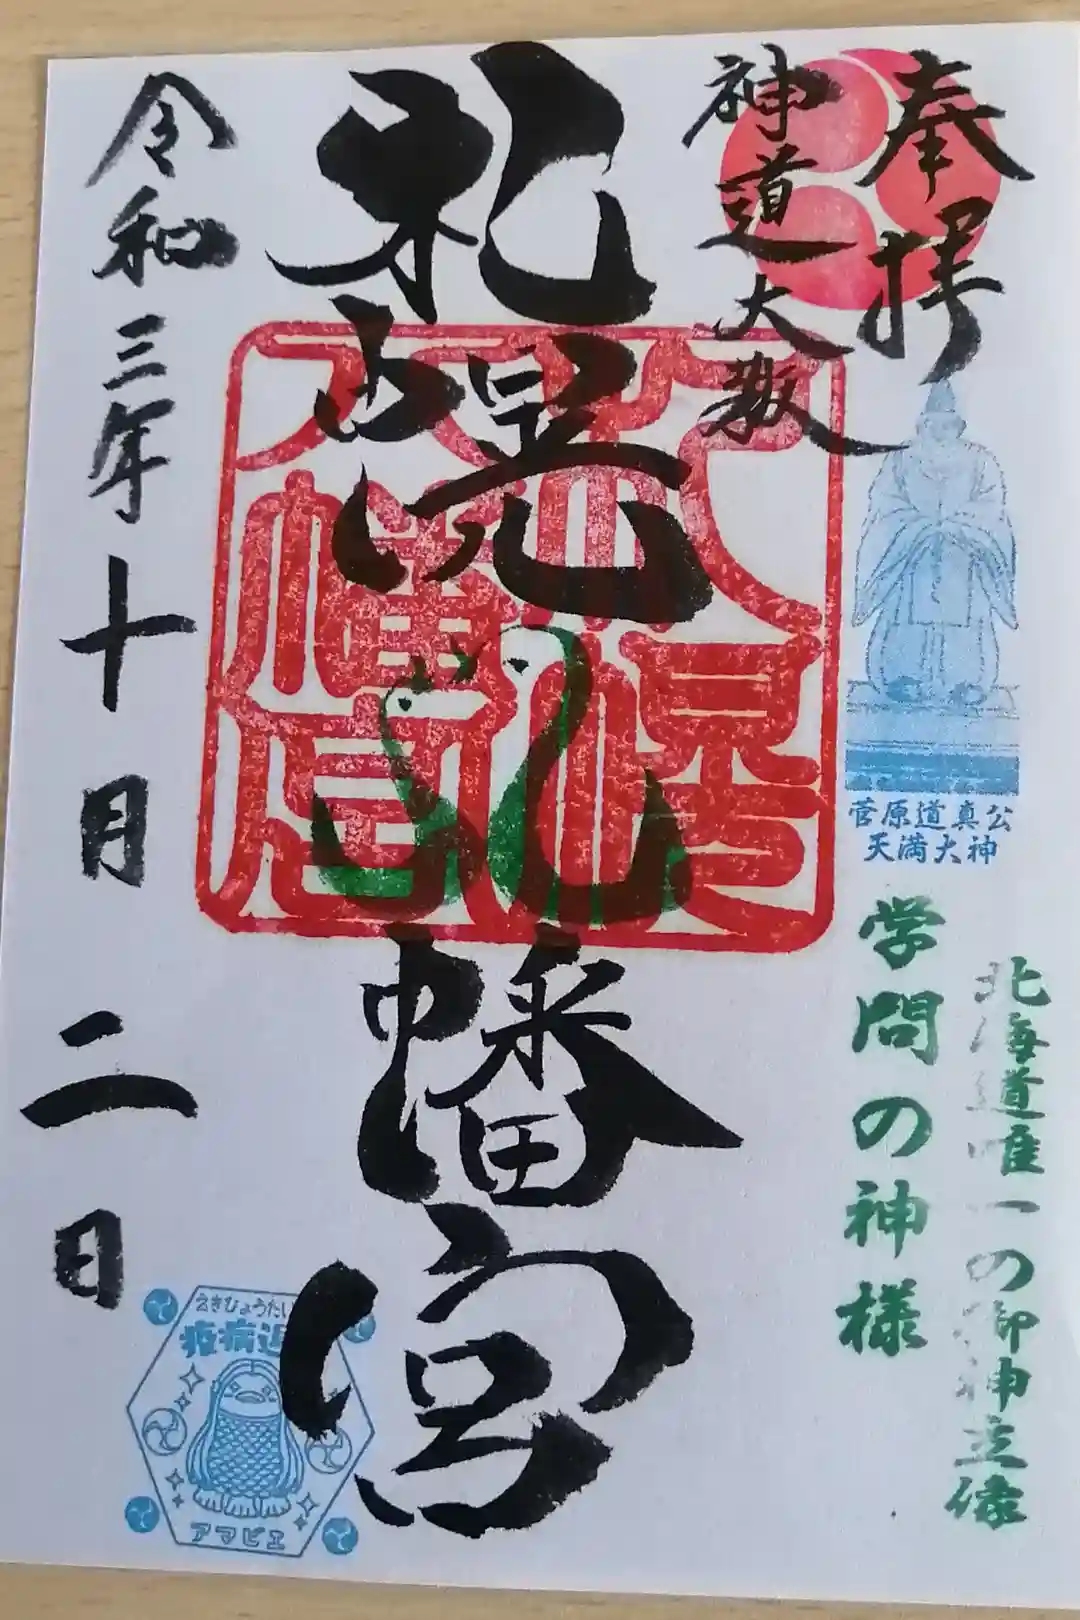 奉拝
神道大教
菅原道真公
天満大神
北海道唯一の御神立像
学問の神様
札幌八幡宮
札幌
八幡宮
令和三年十月二日
えきびょうたい
疫病退
アマビエ